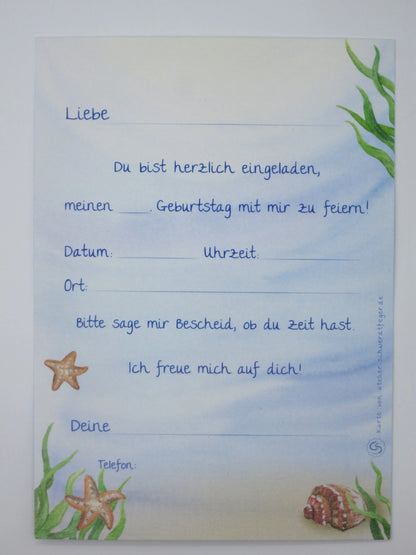 Liebe
Du bist herzlich eingeladen,
meinen ____. Geburtstag mit mir zu feiern!
Datum: Uhrzeit:
Ort:
Bitte sage mir Bescheid, ob du Zeit hast.
Ich freue mich auf dich!
Deine
Telefon:
Karte von atelier-schwerdtfeger.de